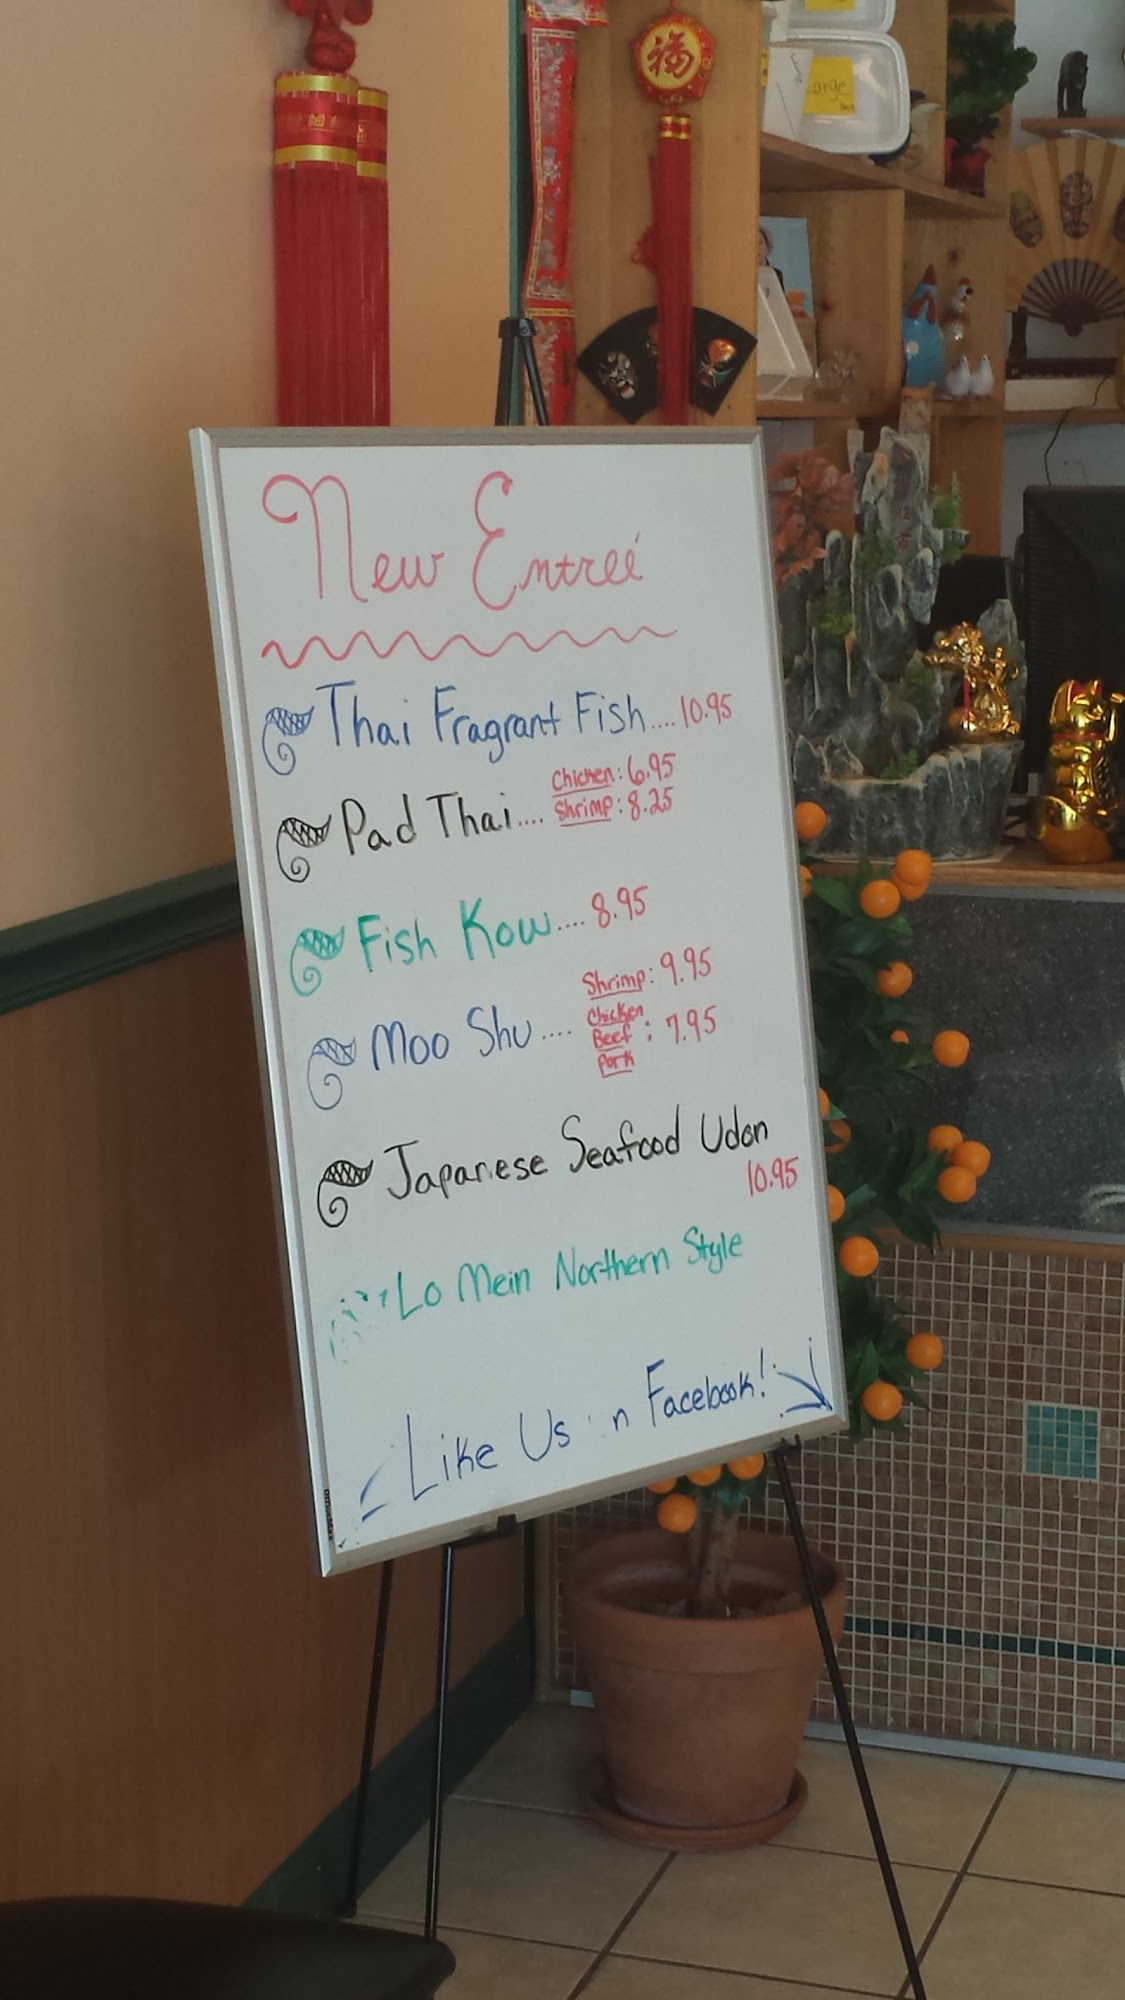 福
Large
New Entreé
Thai Fragrant Fish....10.95
Pad Thai.... Chicken: 6.95
Shrimp: 8.25
Fish Kow.... 8.95
Moo Shu.... Shrimp: 9.95
Chicken
Beef : 7.95
Pork
Japanese Seafood Udon
10.95
Lo Mein Northern Style
Like Us n Facebook!